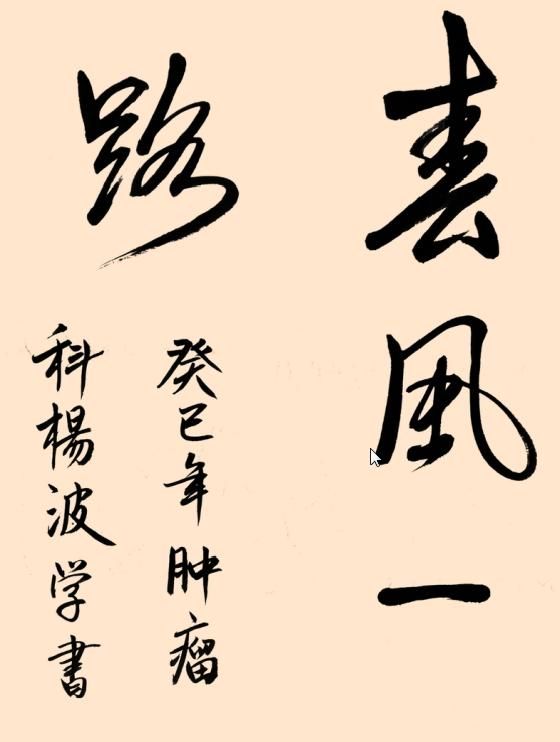 春風一
路
癸巳年肿瘤
科楊波学書